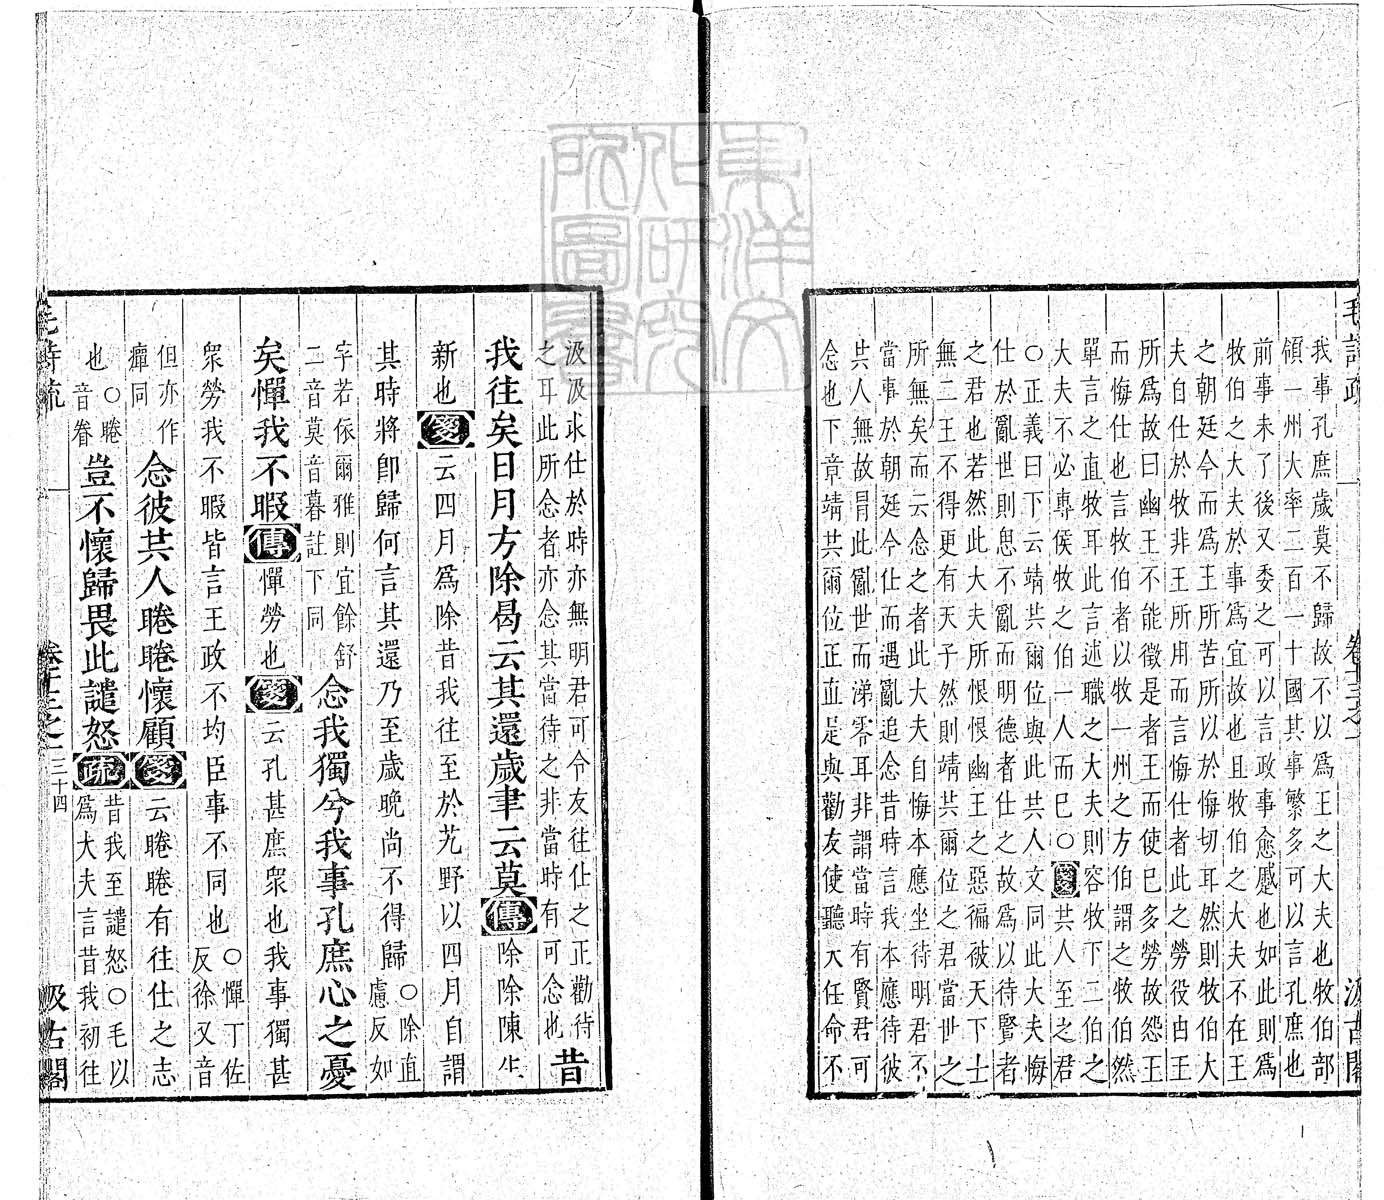 毛詩疏 卷十三之一 汲古閣
我事孔庶歲莫不歸故不以爲王之大夫也牧伯部
領一州大率二百一十國其事繁多可以言孔庶也
前事未了後又委之可以言政事愈蹙也如此則爲
牧伯之大夫於事爲宜故也且牧伯之大夫不在王
之朝廷今而爲王所苦所以於悔切耳然則牧伯大
夫自仕於牧非王所用而言悔仕者此之勞役由王
所爲故曰幽王不能徵是者王而使巳多勞故怨王
而悔仕也言牧伯者以牧一州之方伯謂之牧伯然
單言之直牧耳此言述職之大夫則容牧下二伯之
大夫不必專侯牧之伯一人而巳○箋共人至之君
○正義曰下云靖共爾位與此共人文同此大夫悔
仕於亂世則思不亂而明德者仕之故爲以待賢者
之君也若然此大夫所恨恨幽王之惡徧被天下士
無二王不得更有天子然則靖共爾位之君當世之
所無矣而云念之者此大夫自悔本應坐待明君不
當事於朝廷今仕而遇亂追念昔時言我本應待彼
共人無故冒此亂世而涕零耳非謂當時有賢君可
念也下章靖共爾位正直是與勸友使聽天任命不
汲汲求仕於時亦無明君可令友往仕之正勸待
之耳此所念者亦念其當待之非當時有可念也
昔
我往矣日月方除曷云其還歲聿云莫傳除除陳生
新也箋云四月爲除昔我往至於艽野以四月自謂
其時將卽歸何言其還乃至歲晚尚不得歸○除直
慮反如
字若依爾雅則宜餘舒
二音莫音暮註下同
念我獨兮我事孔庶心之憂
矣憚我不暇傳憚勞也箋云孔甚庶衆也我事獨甚
衆勞我不暇皆言王政不均臣事不同也○憚丁佐
反徐又音
但亦作
癉同
念彼共人睠睠懷顧箋云睠睠有往仕之志
也○睠
音眷
豈不懷歸畏此譴怒疏昔我至譴怒○毛以
爲大夫言昔我初往
毛詩疏 卷十三之一 三十四 汲古閣
東洋文化研究所圖書